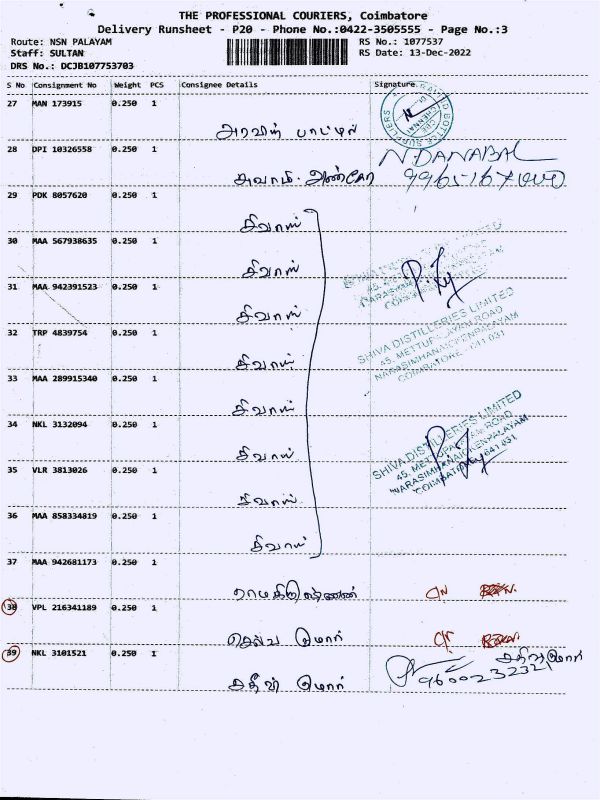 THE PROFESSIONAL COURIERS, Coimbatore
Delivery Runsheet - P20 - Phone No.:0422-3505555 - Page No.:3
Route: NSN PALAYAM RS No.: 1077537
Staff: SULTAN RS Date: 13-Dec-2022
DRS No.: DCJB107753703
S No Consignment No Weight PCS Consignee Details Signature
27 MAN 173915 0.250 1
BOTTLE SUPPLIERS CHENNAI
அரவிந் பாட்டில்
28 DPI 10326558 0.250 1 N.DANABAL
அவாமி
29 PDK 8057620 0.250 1
சிவாஸ்
30 MAA 567938635 0.250 1
சிவாஸ்
31 MAA 942391523 0.250 1
சிவாஸ்
SHIVA DISTILLERIES LIMITED
45, METTUPALAYAM ROAD
NARASIMHANAICKENPALAYAM
COIMBATORE - 641 031
32 TRP 4839754 0.250 1
சிவாஸ்
33 MAA 289915340 0.250 1
சிவாஸ்
34 NKL 3132094 0.250 1
சிவாஸ்
SHIVA DISTILLERIES LIMITED
45, METTUPALAYAM ROAD
NARASIMHANAICKENPALAYAM
COIMBATORE - 641 031
35 VLR 3813026 0.250 1
சிவாஸ்
36 MAA 858334819 0.250 1
சிவாஸ்
37 MAA 942681173 0.250 1
ராமகிருஷ்ணன்
38 VPL 216341189 0.250 1
செல்வ குமார்
39 NKL 3101521 0.250 1
சதீஷ் குமார் 9600232321